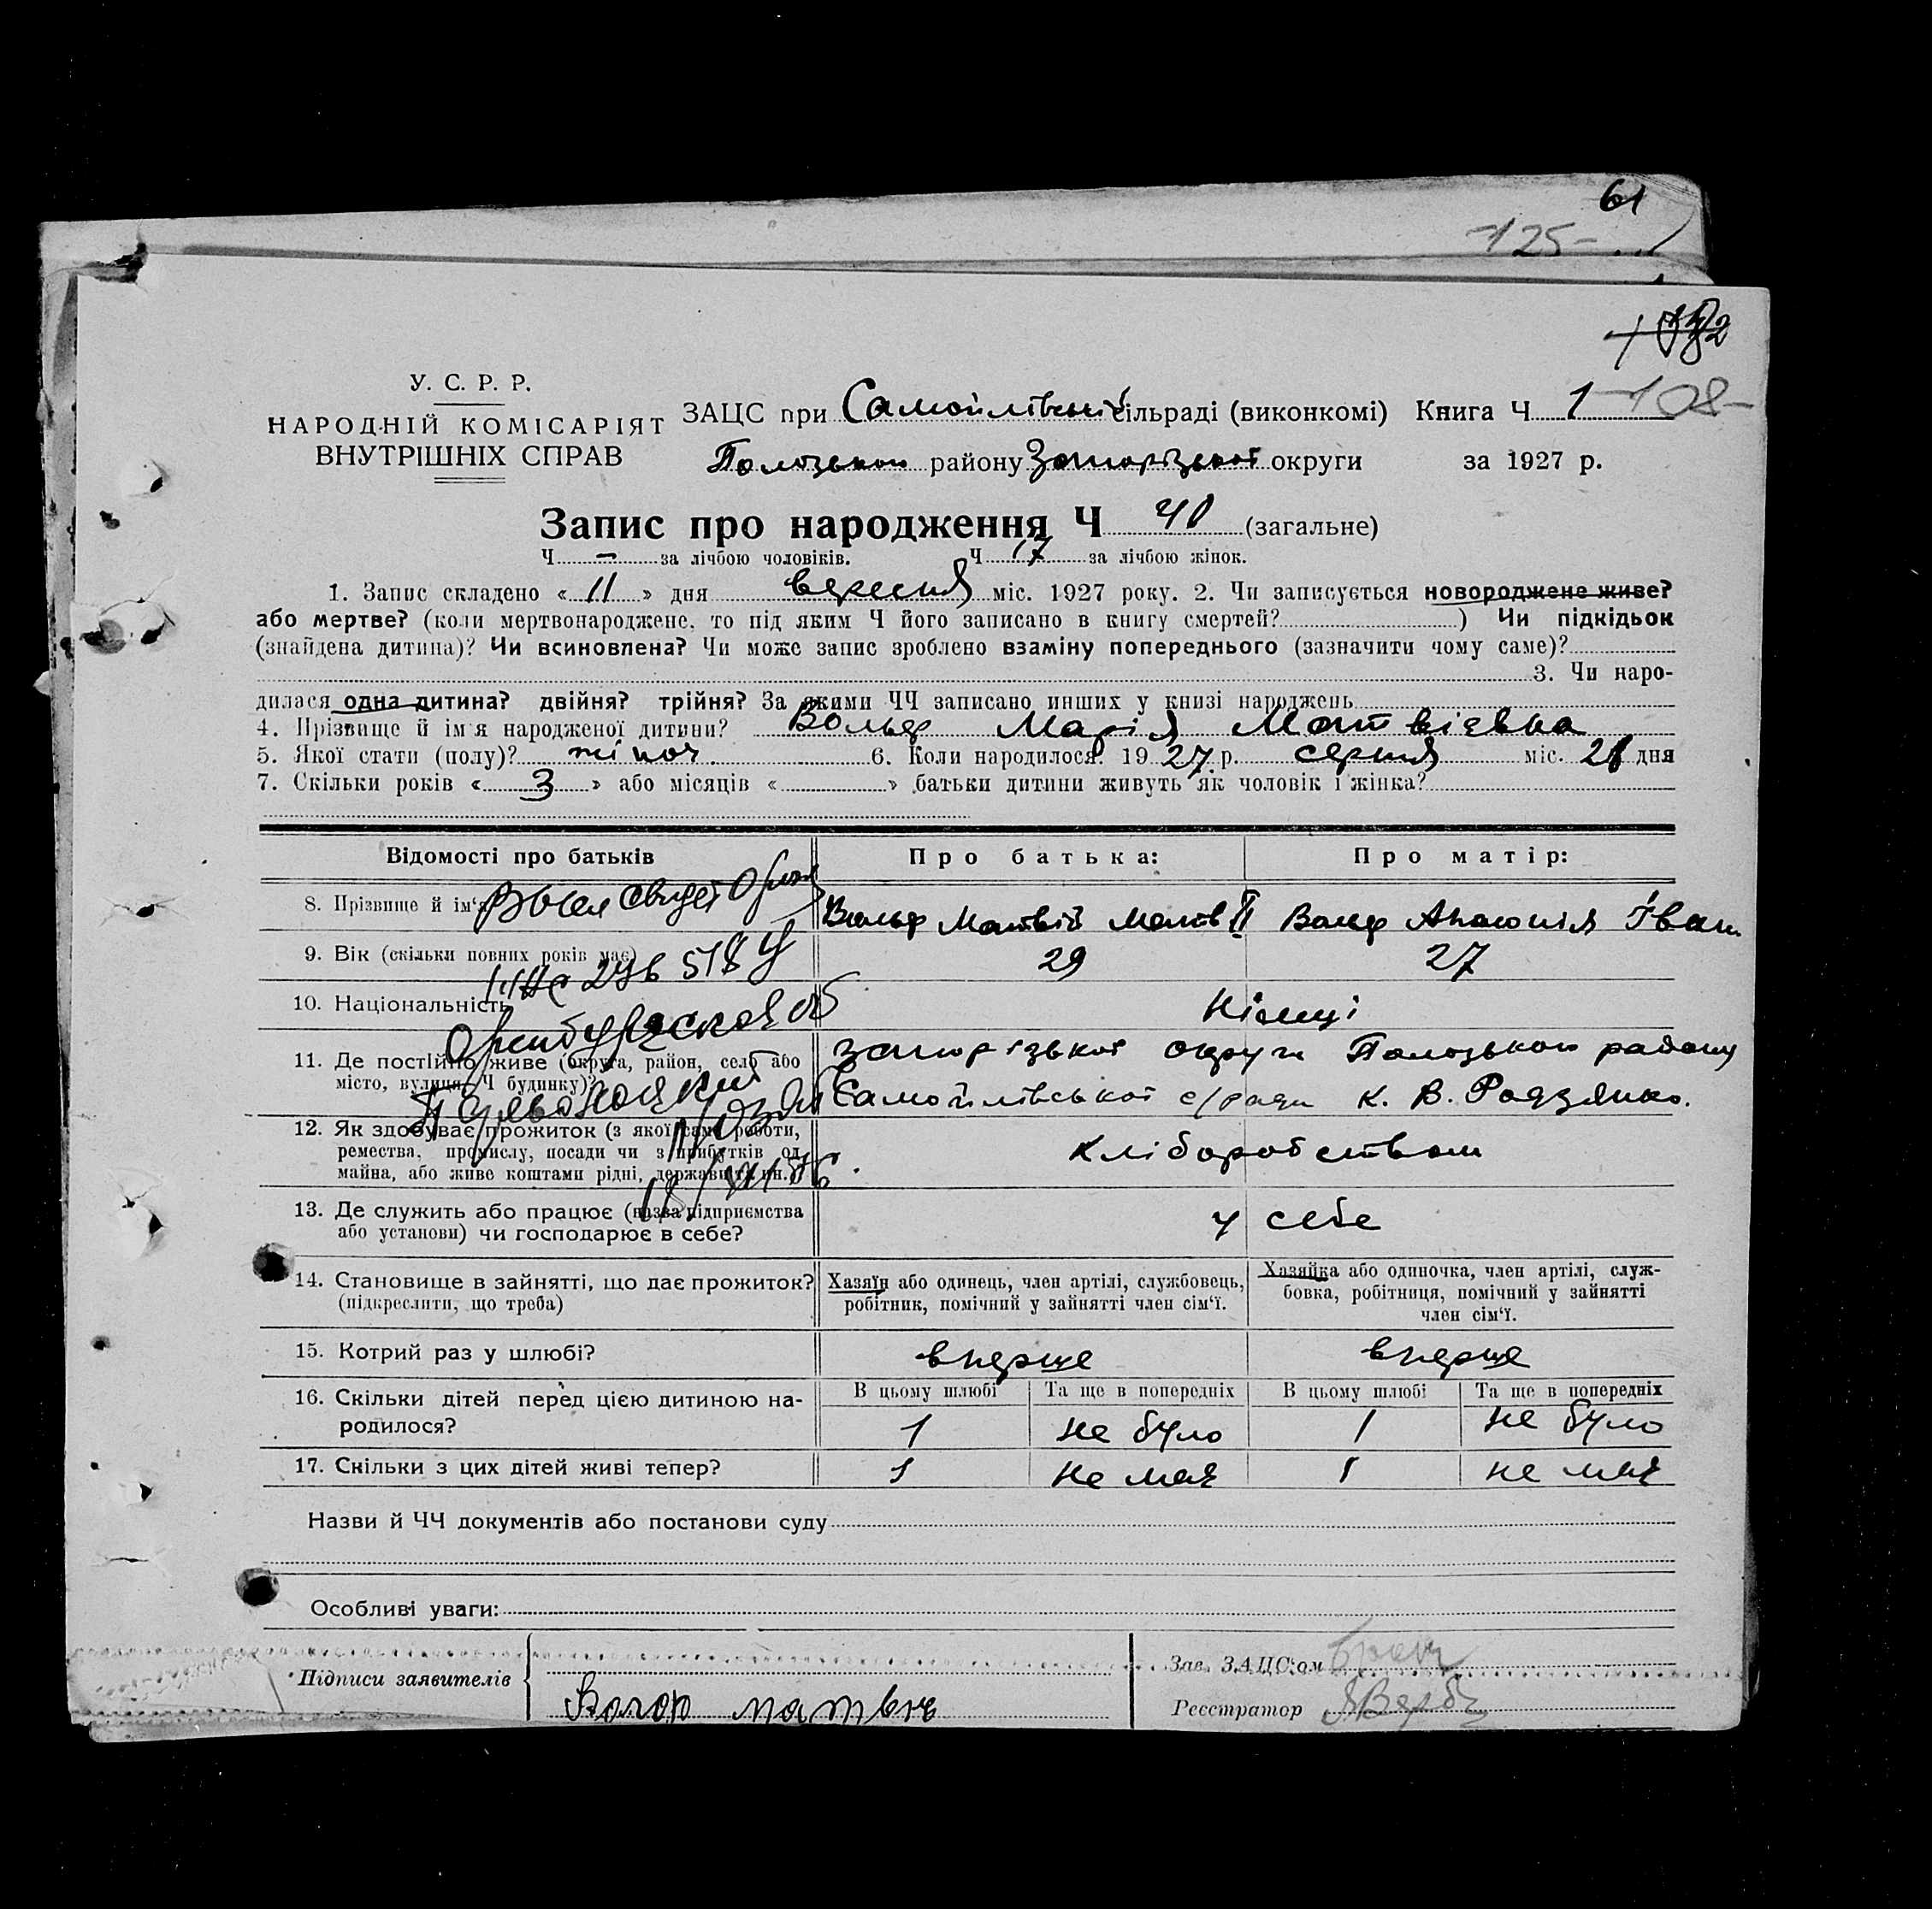 61
-125-
-108-
У. С. Р. Р.
НАРОДНІЙ КОМІСАРІЯТ
ВНУТРІШНІХ СПРАВ
ЗАЦС при Самойлівській сільраді (виконкомі) Книга Ч 1
Пологського району Запорізької округи за 1927 р.
Запис про народження Ч 40 (загальне)
Ч — за лічбою чоловіків. Ч 17 за лічбою жінок.
1. Запис складено « 11 » дня вересня міс. 1927 року. 2. Чи записується новороджене живе?
або мертве? (коли мертвонароджене, то під яким Ч його записано в книгу смертей? ) Чи підкідьок
(знайдена дитина)? Чи всиновлена? Чи може запис зроблено взаміну попереднього (зазначити чому саме)?
3. Чи наро-
дилася одна дитина? двійня? трійня? За якими ЧЧ записано инших у книзі народжень
4. Прізвище й ім'я народженої дитини? Вольф Марія Матвієвна
5. Якої стати (полу)? жіноч. 6. Коли народилося? 1927 р. серпня міс. 28 дня
7. Скільки років « 3 » або місяців « » батьки дитини живуть як чоловік і жінка?
Відомості про батьків Про батька: Про матір:
8. Прізвище й ім'я Вольф Матвій Матв II Вольф Апалонія Іван
9. Вік (скільки повних років має) 29 27
10. Національність Німці
11. Де постійно живе (округа, район, село або
місто, вулиця, Ч будинку)?
Запорізької округи Пологського району
Самойлівської с/ради к. В. Родзянко.
12. Як здобуває прожиток (з якої саме роботи,
ремества, промислу, посади чи з прибутків од
майна, або живе коштами рідні, держави та ин.)
хліборобством
13. Де служить або працює (назва підприємства
або установи) чи господарює в себе?
у себе
14. Становище в зайнятті, що дає прожиток?
(підкреслити, що треба)
Хазяїн або одинець, член артілі, службовець,
робітник, помічний у зайнятті член сім'ї.
Хазяйка або одиночка, член артілі, служ-
бовка, робітниця, помічний у зайнятті
член сім'ї.
15. Котрий раз у шлюбі? вперше вперше
16. Скільки дітей перед цією дитиною на-
родилося?
В цьому шлюбі Та ще в попередніх В цьому шлюбі Та ще в попередніх
1 не було 1 не було
17. Скільки з цих дітей живі тепер? 1 не має 1 не має
Назви й ЧЧ документів або постанови суду
Особливі уваги:
Підписи заявителів
Вольф матвій
Зав. ЗАЦС'ом
Реєстратор